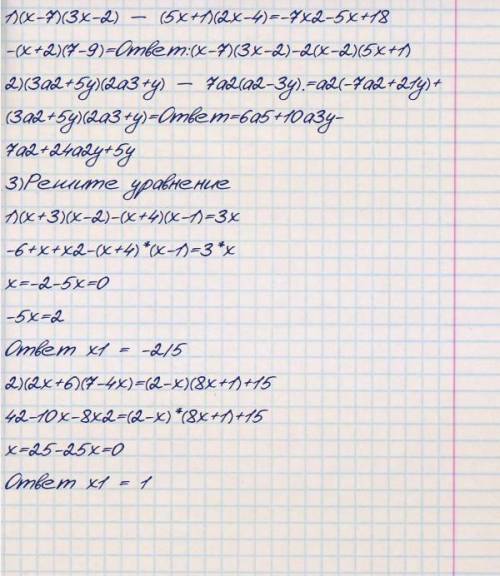 1)(x-7)(3x-2) — (5x+1)(2x-4)=-7x2-5x+18
-(x+2)(7-9)=Ответ:(x-7)(3x-2)-2(x-2)(5x+1)
2)(3a2+5y)(2a3+y) — 7a2(a2-3y).=a2(-7a2+21y)+
(3a2+5y)(2a3+y)=Ответ=6a5+10a3y-
7a2+24a2y+5y
3)Решите уравнение
1)(x+3)(x-2)-(x+4)(x-1)=3x
-6+x+x2-(x+4)*(x-1)=3*x
x=-2-5x=0
-5x=2
Ответ x1 = -2/5
2)(2x+6)(7-4x)=(2-x)(8x+1)+15
42-10x-8x2=(2-x)*(8x+1)+15
x=25-25x=0
Ответ x1 = 1